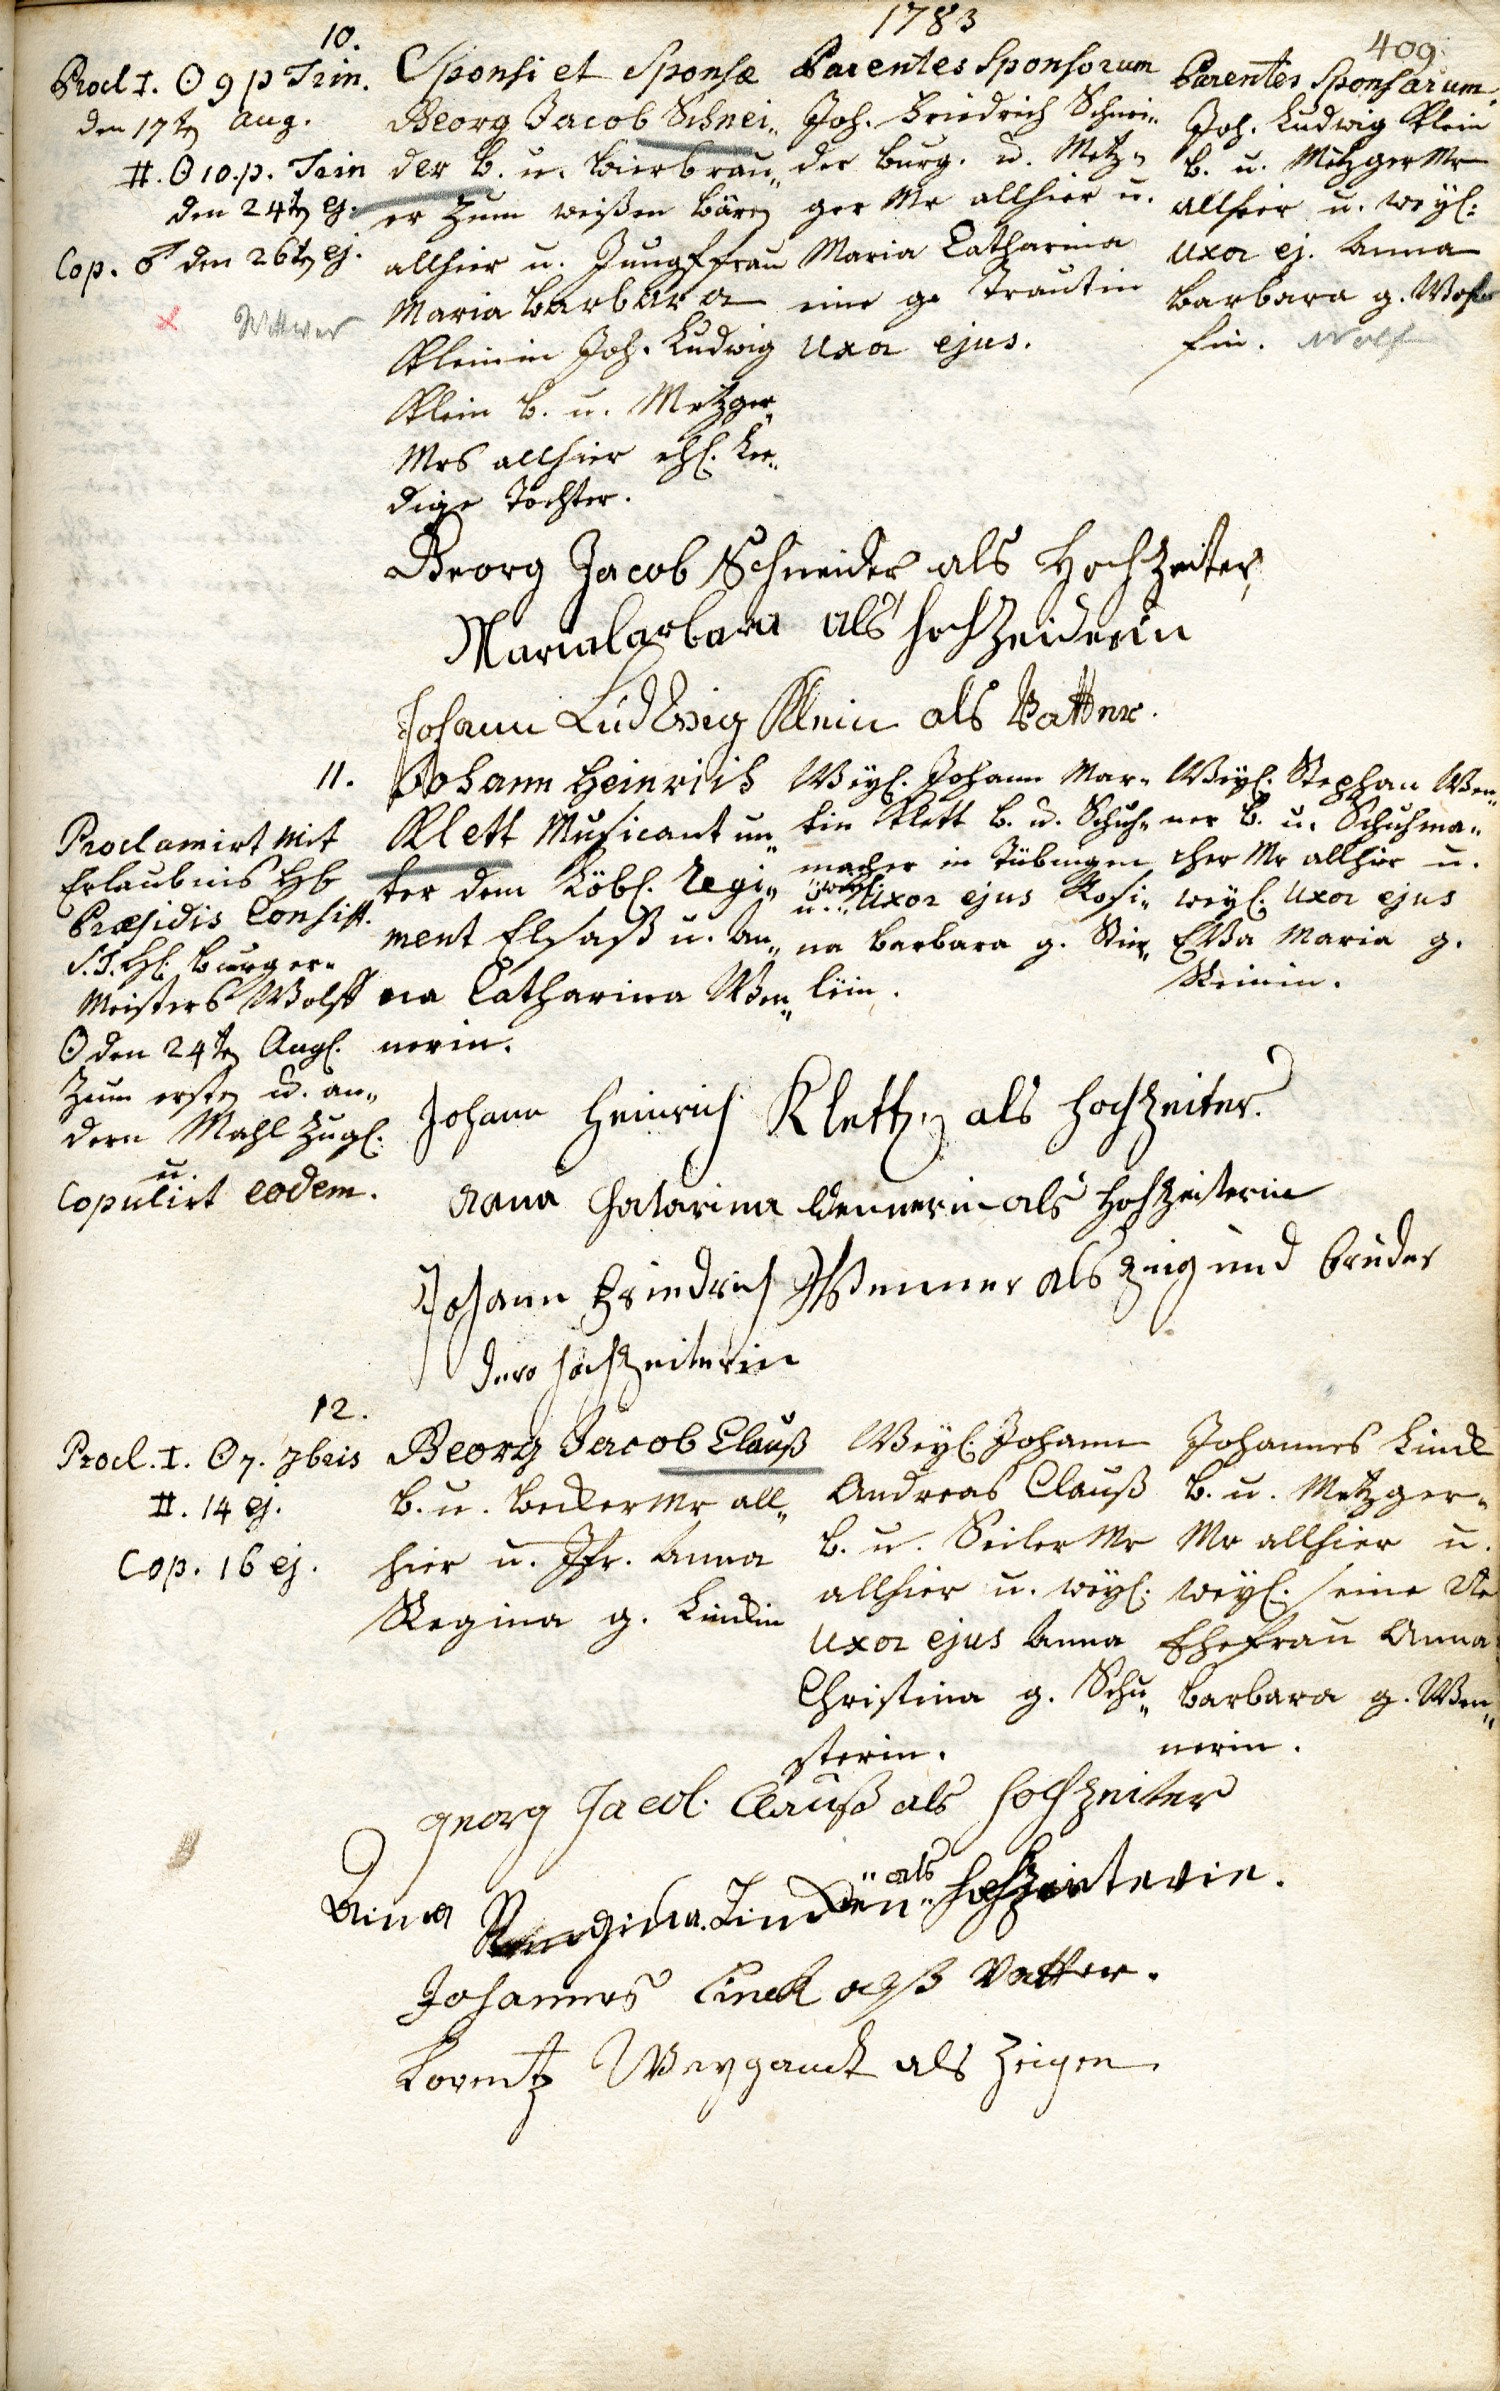 1783
409
10.
Procl. I. ☉ 9 p Trin.
den 17ten Aug.
II. ☉ 10. p. Trin
den 24ten ej.
Cop. ♂ den 26ten ej.
x Wittwer
Sponsi et Sponsæ
Georg Jacob Schnei„
der b. u. bierbrau„
er zum weißen Bären
allhier u. Jungffrau
Maria Barbara
Kleinin Joh. Ludwig
Klein b. u. Metzger„
Mrs allhier ehl. Le„
dige Tochter.
Parentes Sponsorum
Joh. Friedrich Schnei„
der burg. u. Metz„
ger Mr allhier u.
Maria Catharina
eine g. Trautin
Uxor ejus.
Parentes Sponsarum.
Joh. Ludwig Klein
b. u. Metzger Mr
allhier u. weyl.
Uxor ej. Anna
Barbara g. Wolf„
fin. Wolf
Georg Jacob Schneider als Hochzeiter,
Maria barbara als hochzeiderin
Johann Ludwig Klein als Vatter.
11.
Proclamirt mit
Erlaubnis Hl
Præsidis Consist.
S. T. Hl. Burger„
Meisters Wolff
☉ den 24ten Augl.
zum ersten u. an„
dern Mahl zugl.
u.
Copulirt eodem.
Johann Heinrich
Klett Musicant un„
ter dem Löbl. Regi„
ment Elsaß u. An„
na Catharina Wen„
nerin.
Weyl. Johann Mar„
tin Klett b. u. Schuh„
macher in Tübingen
weyl.
u. Uxor ejus Rosi„
na Barbara g. Stier„
lein.
Weyl. Stephan Wen„
ner b. u. Schuhma„
cher Mr allhier u.
weyl. Uxor ejus
Eva Maria g.
Steinin.
Johann Heinrich Klett als Hochzeiter.
Anna Chatarina Wennerin als Hochzeiterin
Johann Friedrich Wenner als Zeig und Bruder
dero Hochzeiterin
12.
Procl. I. ☉ 7. 7bris
II. 14 ej.
Cop. 16 ej.
Georg Jacob Clauß
b. u. Becker Mr all„
hier u. Jfr. Anna
Regina g. Linckin
Weyl. Johann
Andreas Clauß
b. u. Seiler Mr
allhier u. weyl.
Uxor ejus Anna
Christina g. Schu„
sterin.
Johannes Linck
b. u. Metzger„
Mr allhier u.
weyl. seine 2te
Ehefrau Anna
Barbara g. Wen„
nerin.
georg Jacob Clauß als Hochzeiter
Anna Regina Lincken als Hochzeiterin.
Johannes Linck alß Vatter.
Lorentz Weygandt als Zeigen